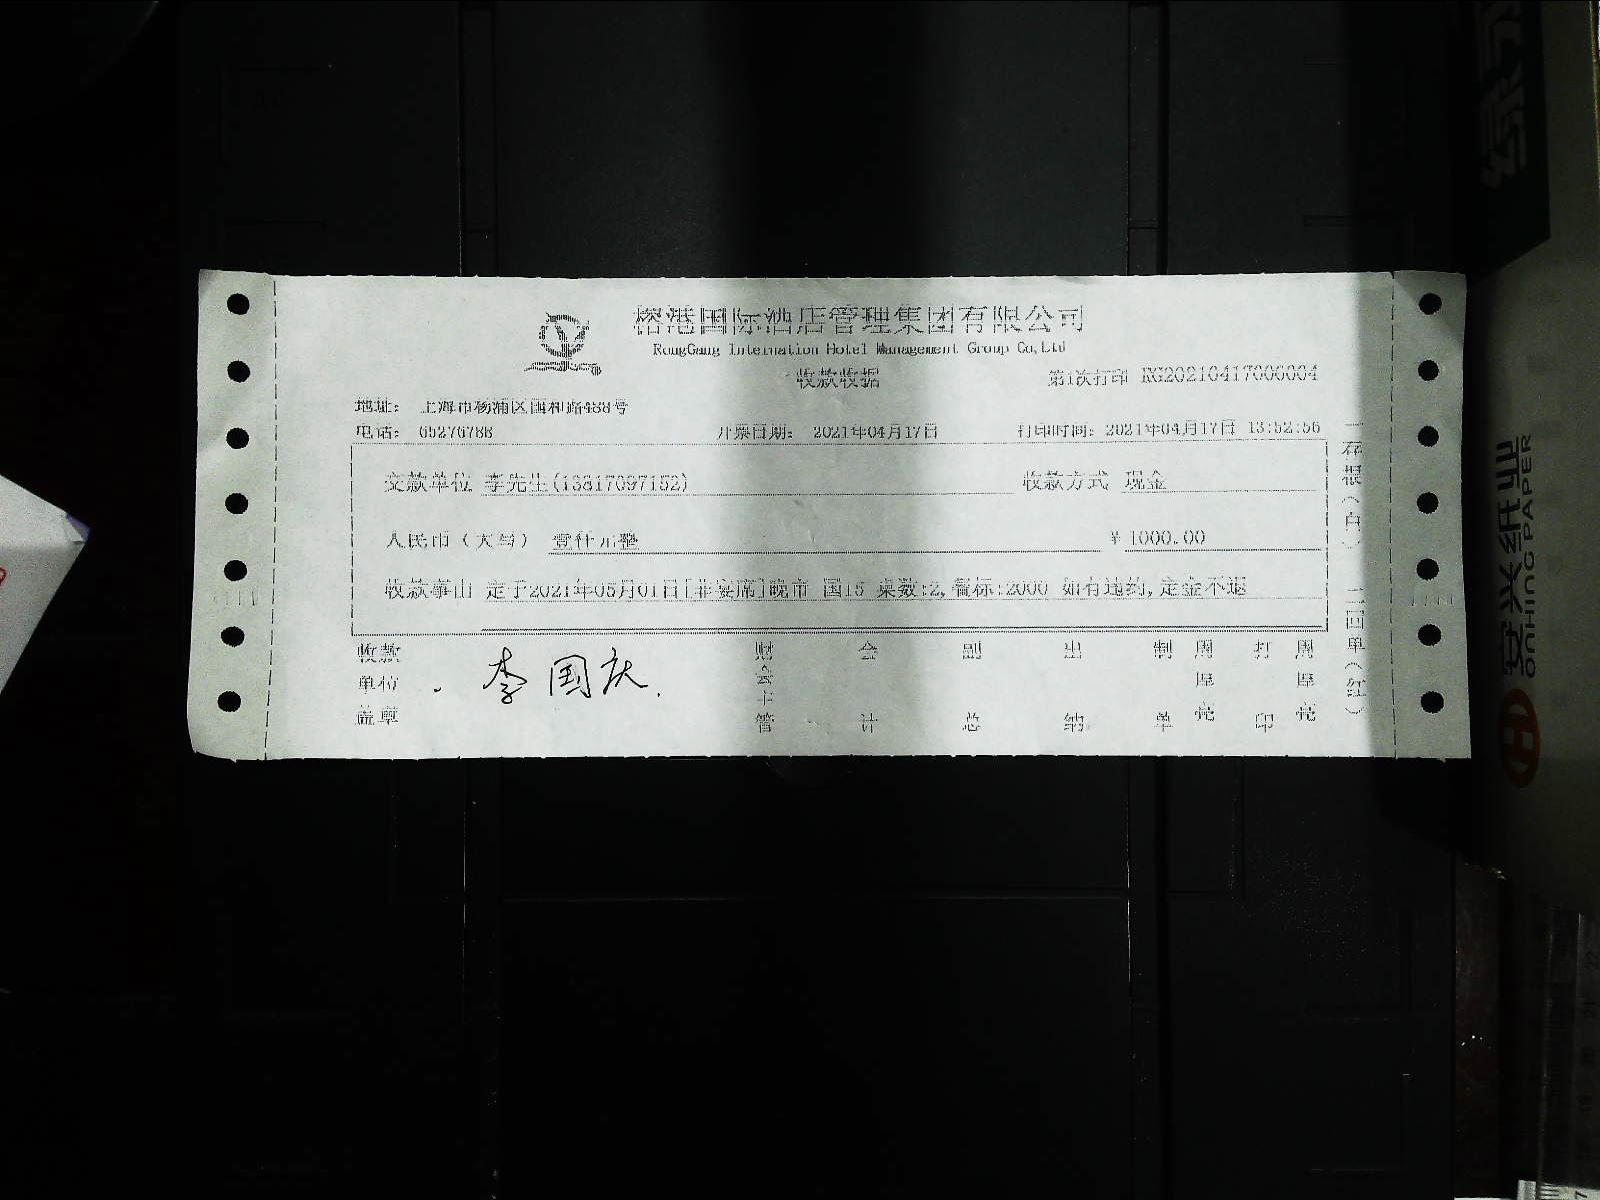 榕港国际酒店管理集团有限公司
RongGang Internation Hotel Management Group Co,Ltd
收款收据
第1次打印 RG20210417000004
地址： 上海市杨浦区国和路488号
电话： 65276788
开票日期： 2021年04月17日
打印时间：2021年04月17日 13:52:56
交款单位 李先生(13817097152)
收款方式 现金
人民币（大写） 壹仟元整
￥1000.00
收款事由 定于2021年05月01日[非宴席]晚市 国15 桌数:2,餐标:2000 如有违约,定金不退
收款单位盖章
李国庆
财会主管
会计
副总
出纳
制单 周厚亮
打印 周厚亮
一存根（白） 二回单（红）
安兴纸业
ONHING PAPER